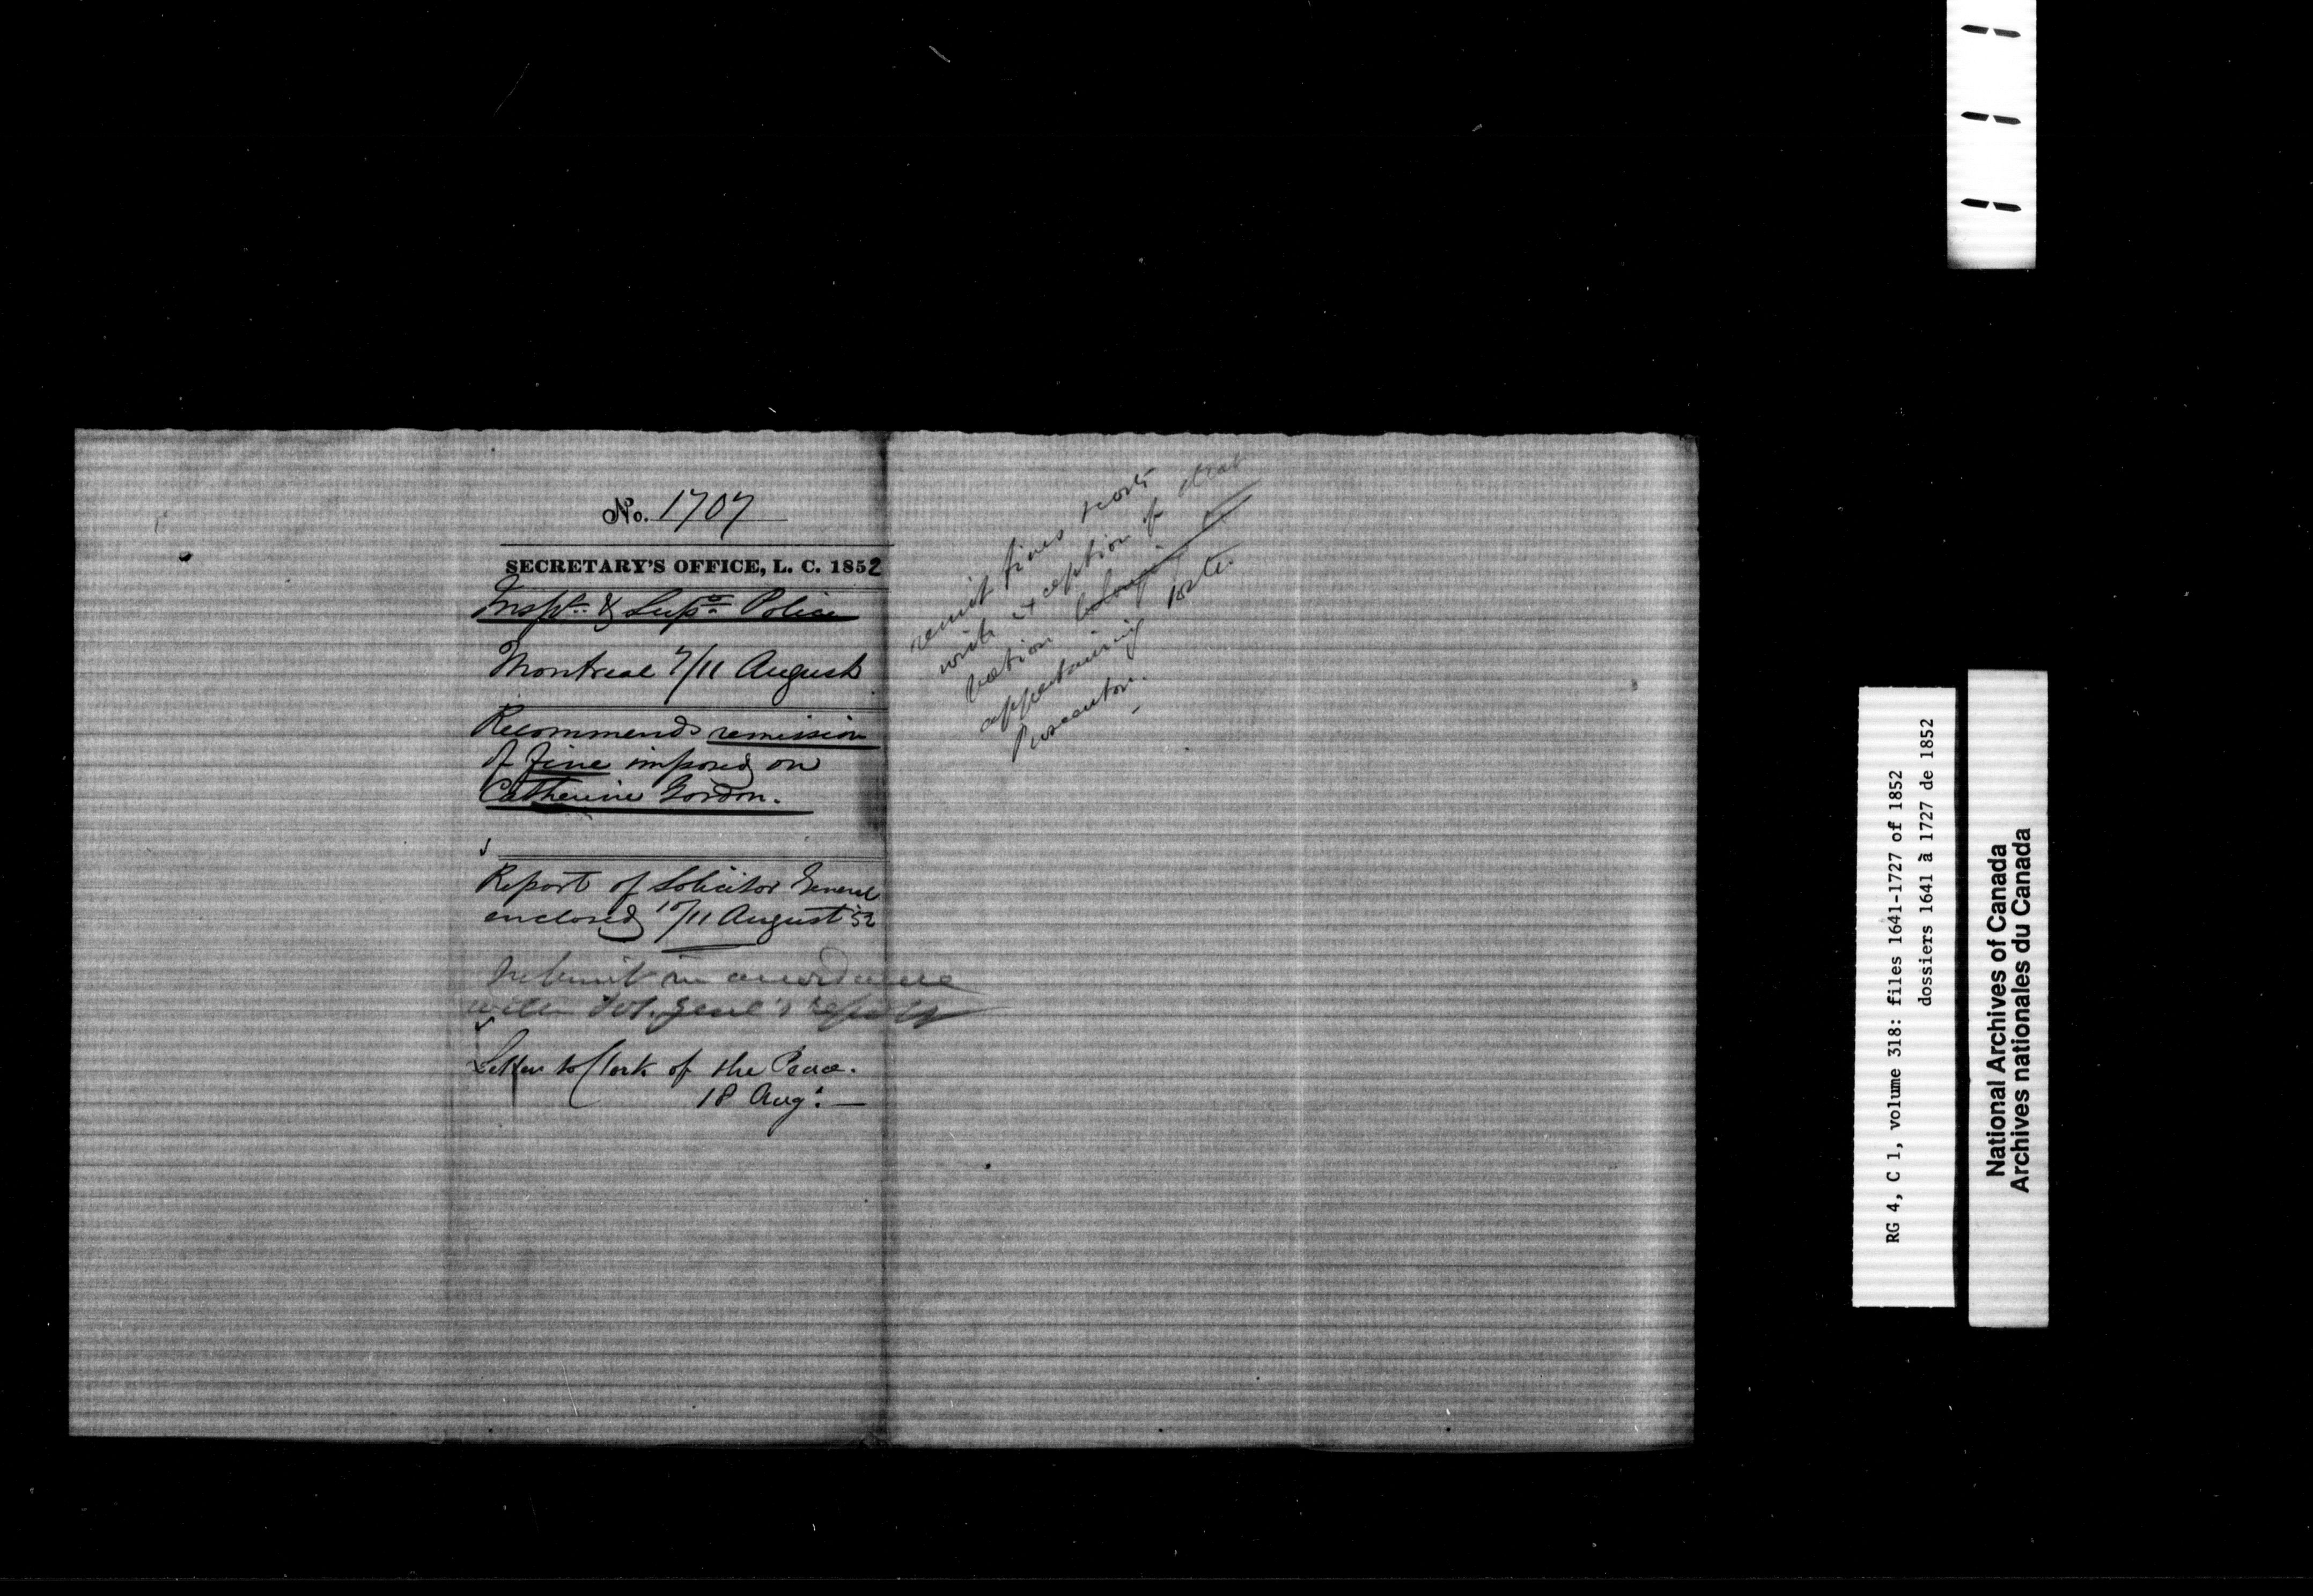 No. 1707
SECRETARY'S OFFICE, L. C. 1852
Inspr. & Supt. Police
Montreal 7/11 August
Recommends remission
of fine imposed on
Catherine Gordon.
Report of Solicitor General
enclosed 10/11 August 52
Submit in accordance
with Sol. Genl's report
Letter to Clerk of the Peace.
18 Augt. —
remit fines
with exception of that
portion belonging to
appertaining to the
Prosecutor. —
RG 4, C 1, volume 318: files 1641-1727 of 1852
dossiers 1641 à 1727 de 1852
National Archives of Canada
Archives nationales du Canada